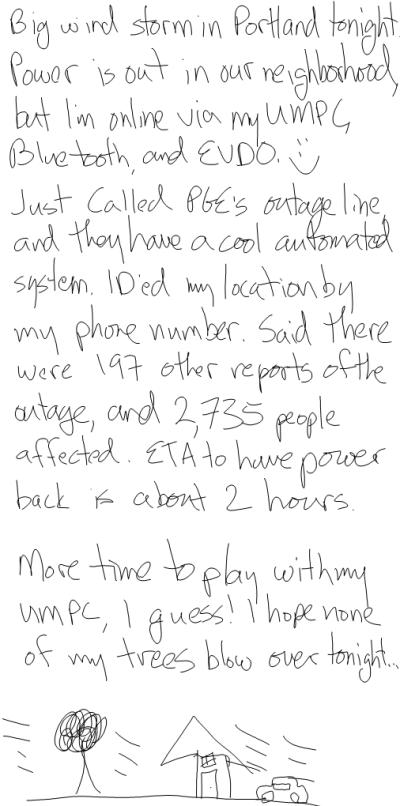 Big wind storm in Portland tonight.
Power is out in our neighborhood,
but I'm online via my UMPC,
Bluetooth, and EVDO. :)
Just called PGE's outage line,
and they have a cool automated
system. ID'ed my location by
my phone number. Said there
were 197 other reports of the
outage, and 2,735 people
affected. ETA to have power
back is about 2 hours.
More time to play with my
UMPC, I guess! I hope none
of my trees blow over tonight...